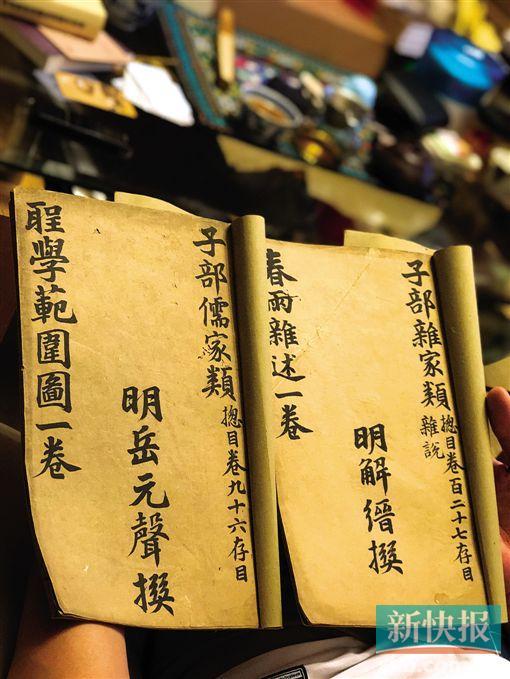 子部雜家類 摠目卷百二十七存目
雜說
明解縉撰
春雨雜述一卷
子部儒家類 摠目卷九十六存目
明岳元聲撰
聖學範圍圖一卷
新快报